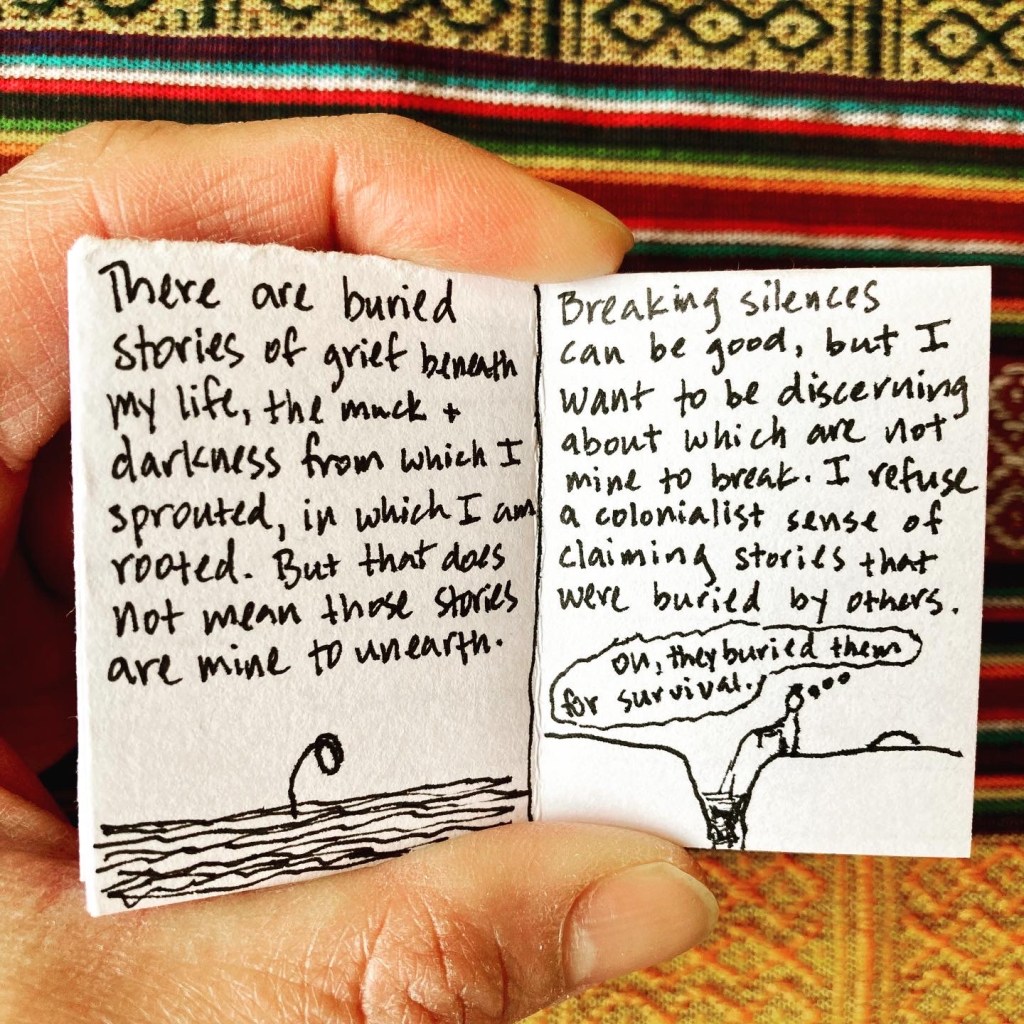 There are buried
stories of grief beneath
my life, the muck +
darkness from which I
sprouted, in which I am
rooted. But that does
not mean those stories
are mine to unearth.
Breaking silences
can be good, but I
want to be discerning
about which are not
mine to break. I refuse
a colonialist sense of
claiming stories that
were buried by others.
oh, they buried them
for survival.